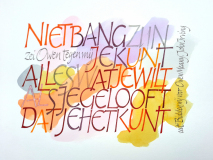 NIET BANG ZIJN
zei Owen tegen mij
JE KUNT
ALLES WAT JE WILT
ALS JE GELOOFT
DAT JE HET KUNT
uit Bidden voor Owen Meany John Irving